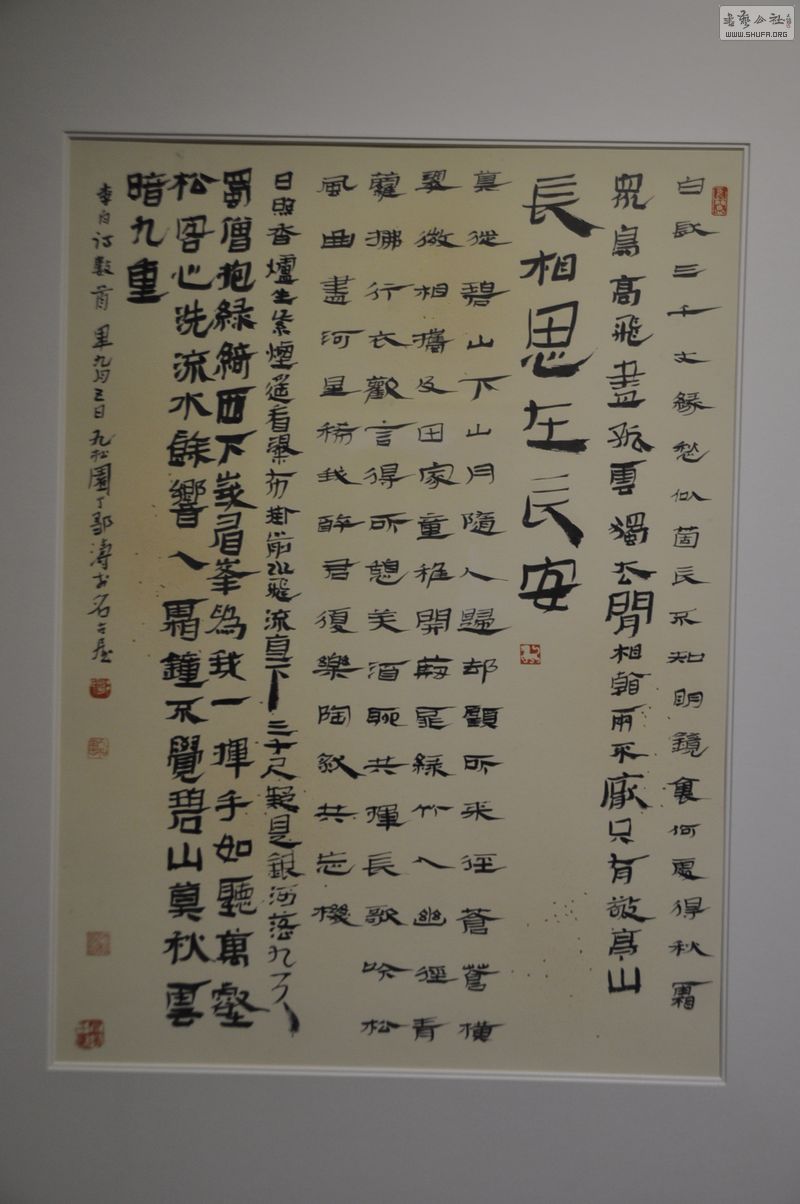 書藝公社
WWW.SHUFA.ORG
白髮三千丈緣愁似箇長不知明鏡裏何處得秋霜
眾鳥高飛盡孤雲獨去閒相看兩不厭只有敬亭山
長相思在長安
莫從碧山下山月隨人歸却顧所來徑蒼蒼橫
翠微相攜及田家童稚開荊扉綠竹入幽徑青
蘿拂行衣歡言得所憩美酒聊共揮長歌吟松
風曲盡河星稀我醉君復樂陶然共忘機
日照香爐生紫煙遙看瀑布掛前川飛流直下三千尺疑是銀河落九天
蜀僧抱綠綺西下峨眉峯為我一揮手如聽萬壑
松客心洗流水餘響入霜鐘不覺碧山莫秋雲
暗九重
李白詩數首 九月三日九松園丁鄒濤於